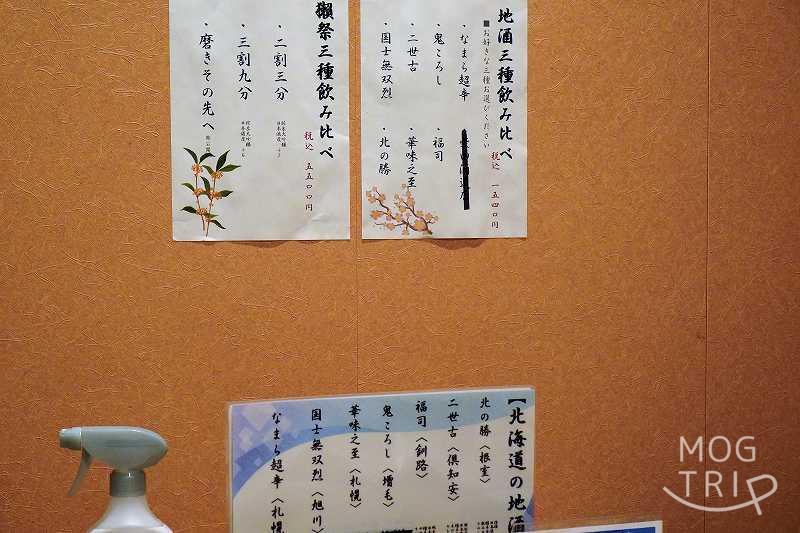 地酒三種飲み比べ
■お好きな三種お選びください
税込 一五四〇円
・なまら超辛
・鬼ころし
・福司
・二世古
・華味之至
・国士無双烈
・北の勝
獺祭三種飲み比べ
税込 五五〇〇円
・二割三分
・三割九分
・磨きその先へ
【北海道の地酒
北の勝〈根室〉
二世古〈倶知安〉
福司〈釧路〉
鬼ころし〈増毛〉
華味之至〈札幌〉
国士無双烈〈旭川〉
なまら超辛〈札幌
MOG
TRIP